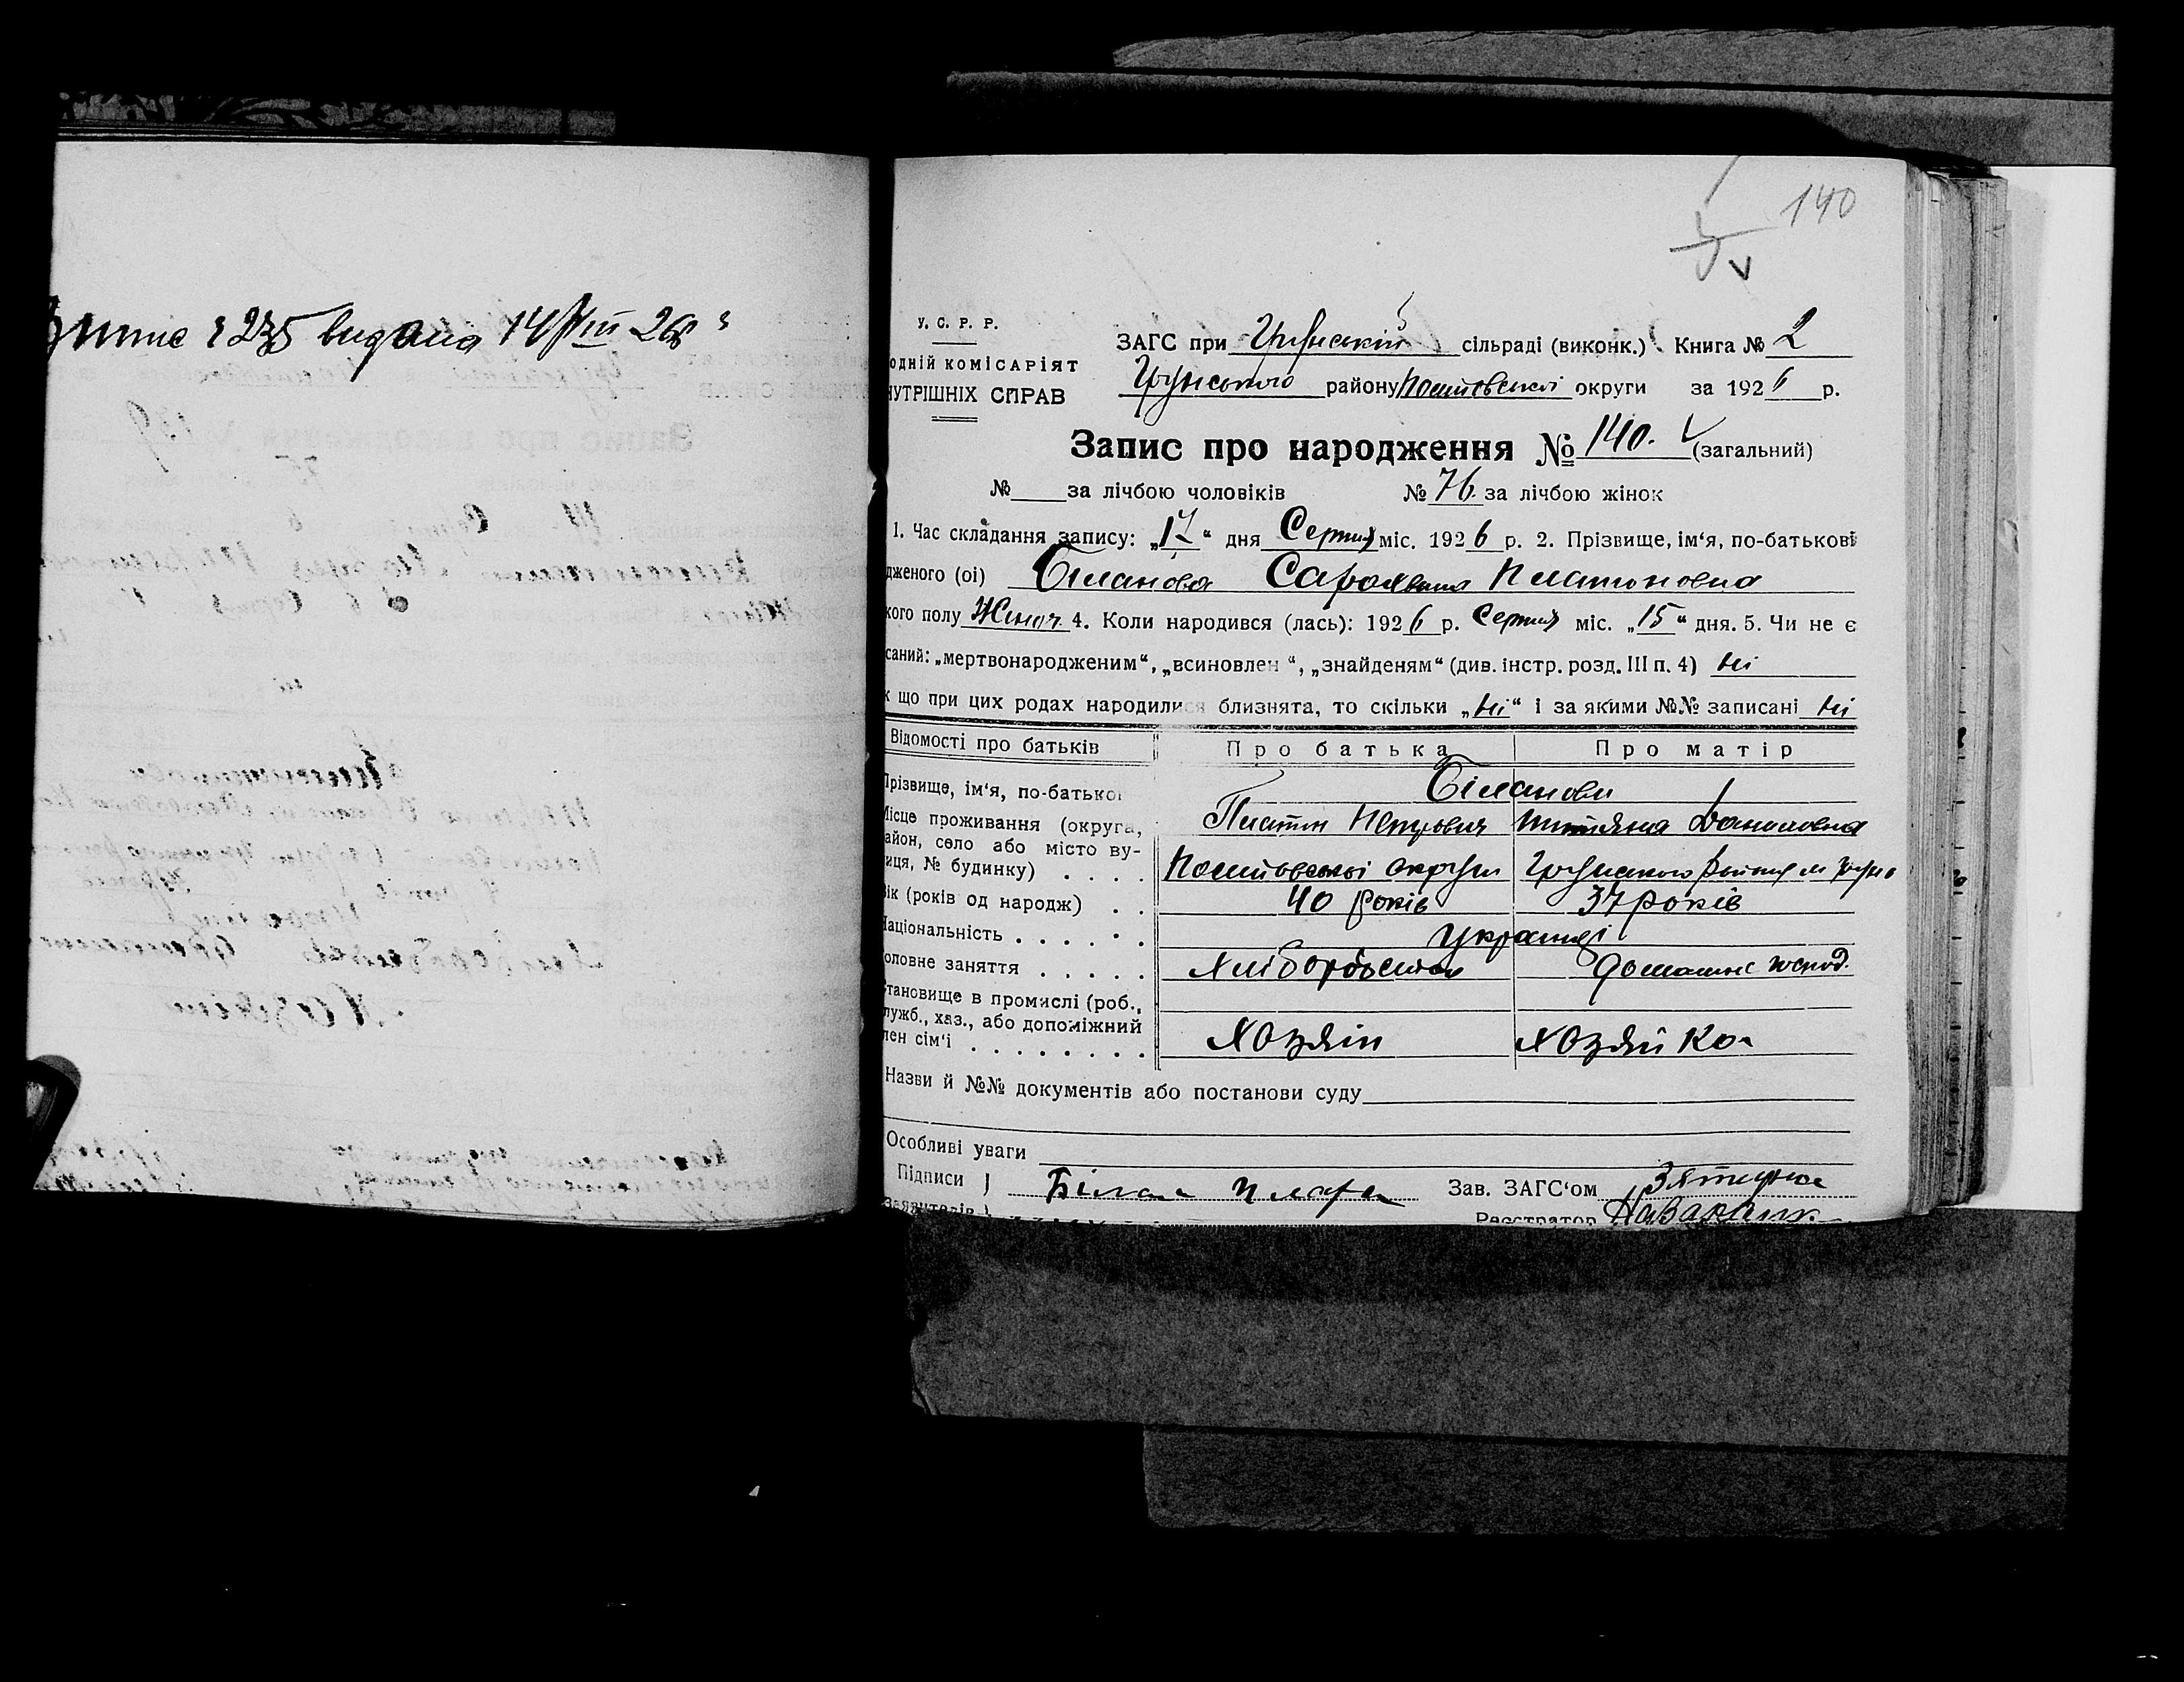 235 видана 14/VIII 26
140
У. С. Р. Р.
ОДНІЙ КОМІСАРІЯТ
НУТРІШНІХ СПРАВ
ЗАГС при Грунській сільраді (виконк.) Книга № 2
Грунського району Полтавської округи за 1926 р.
Запис про народження № 140. (загальний)
№ за лічбою чоловіків № 76. за лічбою жінок
1. Час складання запису: „17“ дня Серпня міс. 1926 р. 2. Прізвище, ім‘я, по-батькові
дженого (ої) Біланова Платоновна
кого полу Жіноч. 4. Коли народився (лась): 1926 р. Серпня міс. „15“ дня. 5. Чи не є
саний: „мертвонародженим“, „всиновлен “, „знайденям“ (див. інстр. розд. III п. 4) ні
к що при цих родах народилися близнята, то скільки „ні“ і за якими №№ записані ні
Відомості про батьків Про батька Про матір
Прізвище, ім‘я, по-батькові Біланови
Платон Петрович Титяна Даниловна
Місце проживання (округа,
айон, село або місто ву-
иця, № будинку) . . . . Полтавської округи Грунського району м Грунь
Вік (років од народж) . . 40 років 37 років
Національність . . . . . . Українці
оловне заняття . . . . . Хліборобство домашнє господ.
становище в промислі (роб.,
лужб., хаз., або допоміжний
лен сім‘ї . . . . . . . . Хозяін Хозяйка
Назви й №№ документів або постанови суду
Особливі уваги
Підписи } Білан Зав. ЗАГС‘ом
заявителів } Реєстратор